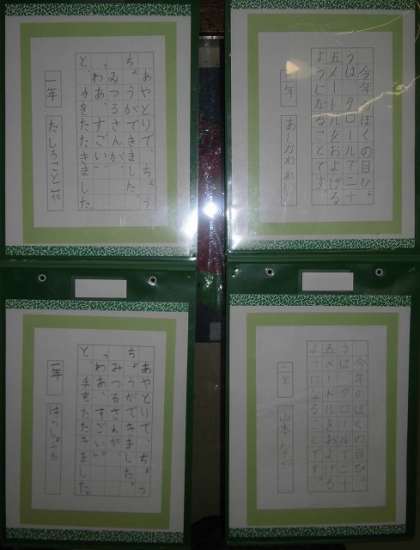 あやとりで、ちょう
ちょうができました。
みつるさんが、
「わあ、すごい。」
と、手をたたきました。
一年
今年のぼくの目ひょ
うは、クロールで二十
五メートルをおよげる
ようになることです。
二年
あやとりで、ちょう
ちょうができました。
みつるさんが、
「わあ、すごい。」
と、手をたたきました。
一年
今年のぼくの目ひょ
うは、クロールで二十
五メートルをおよげる
ようになることです。
二年